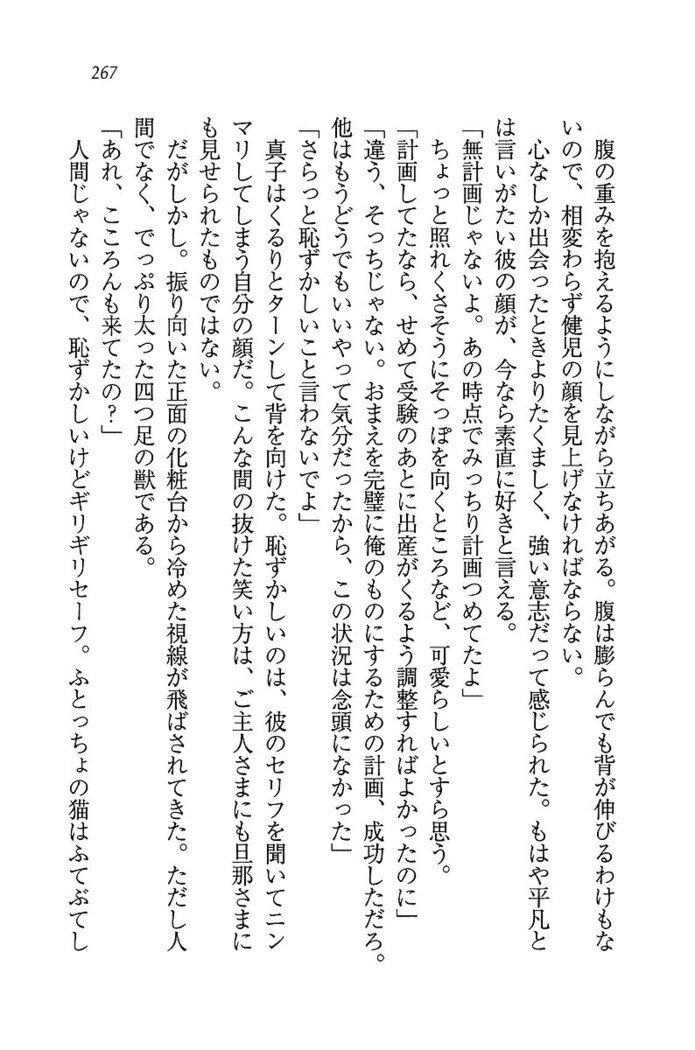 267
腹の重みを抱えるようにしながら立ちあがる。腹は膨らんでも背が伸びるわけもな
いので、相変わらず健児の顔を見上げなければならない。
心なしか出会ったときよりたくましく、強い意志だって感じられた。もはや平凡と
は言いがたい彼の顔が、今なら素直に好きと言える。
「無計画じゃないよ。あの時点でみっちり計画つめてたよ」
ちょっと照れくさそうにそっぽを向くところなど、可愛らしいとすら思う。
「計画してたなら、せめて受験のあとに出産がくるよう調整すればよかったのに」
「違う、そっちじゃない。おまえを完璧に俺のものにするための計画、成功しただろ。
他はもうどうでもいいやって気分だったから、この状況は念頭になかった」
「さらっと恥ずかしいこと言わないでよ」
真子はくるりとターンして背を向けた。恥ずかしいのは、彼のセリフを聞いてニン
マリしてしまう自分の顔だ。こんな間の抜けた笑い方は、ご主人さまにも旦那さまに
も見せられたものではない。
だがしかし。振り向いた正面の化粧台から冷めた視線が飛ばされてきた。ただし人
間でなく、でっぷり太った四つ足の獣である。
「あれ、こころんも来てたの?」
人間じゃないので、恥ずかしいけどギリギリセーフ。ふとっちょの猫はふてぶてし